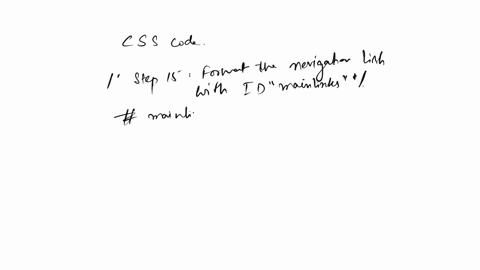 CSS code.
/* Step 15: Format the navigation link
with ID "mainlinks" */
# mainli